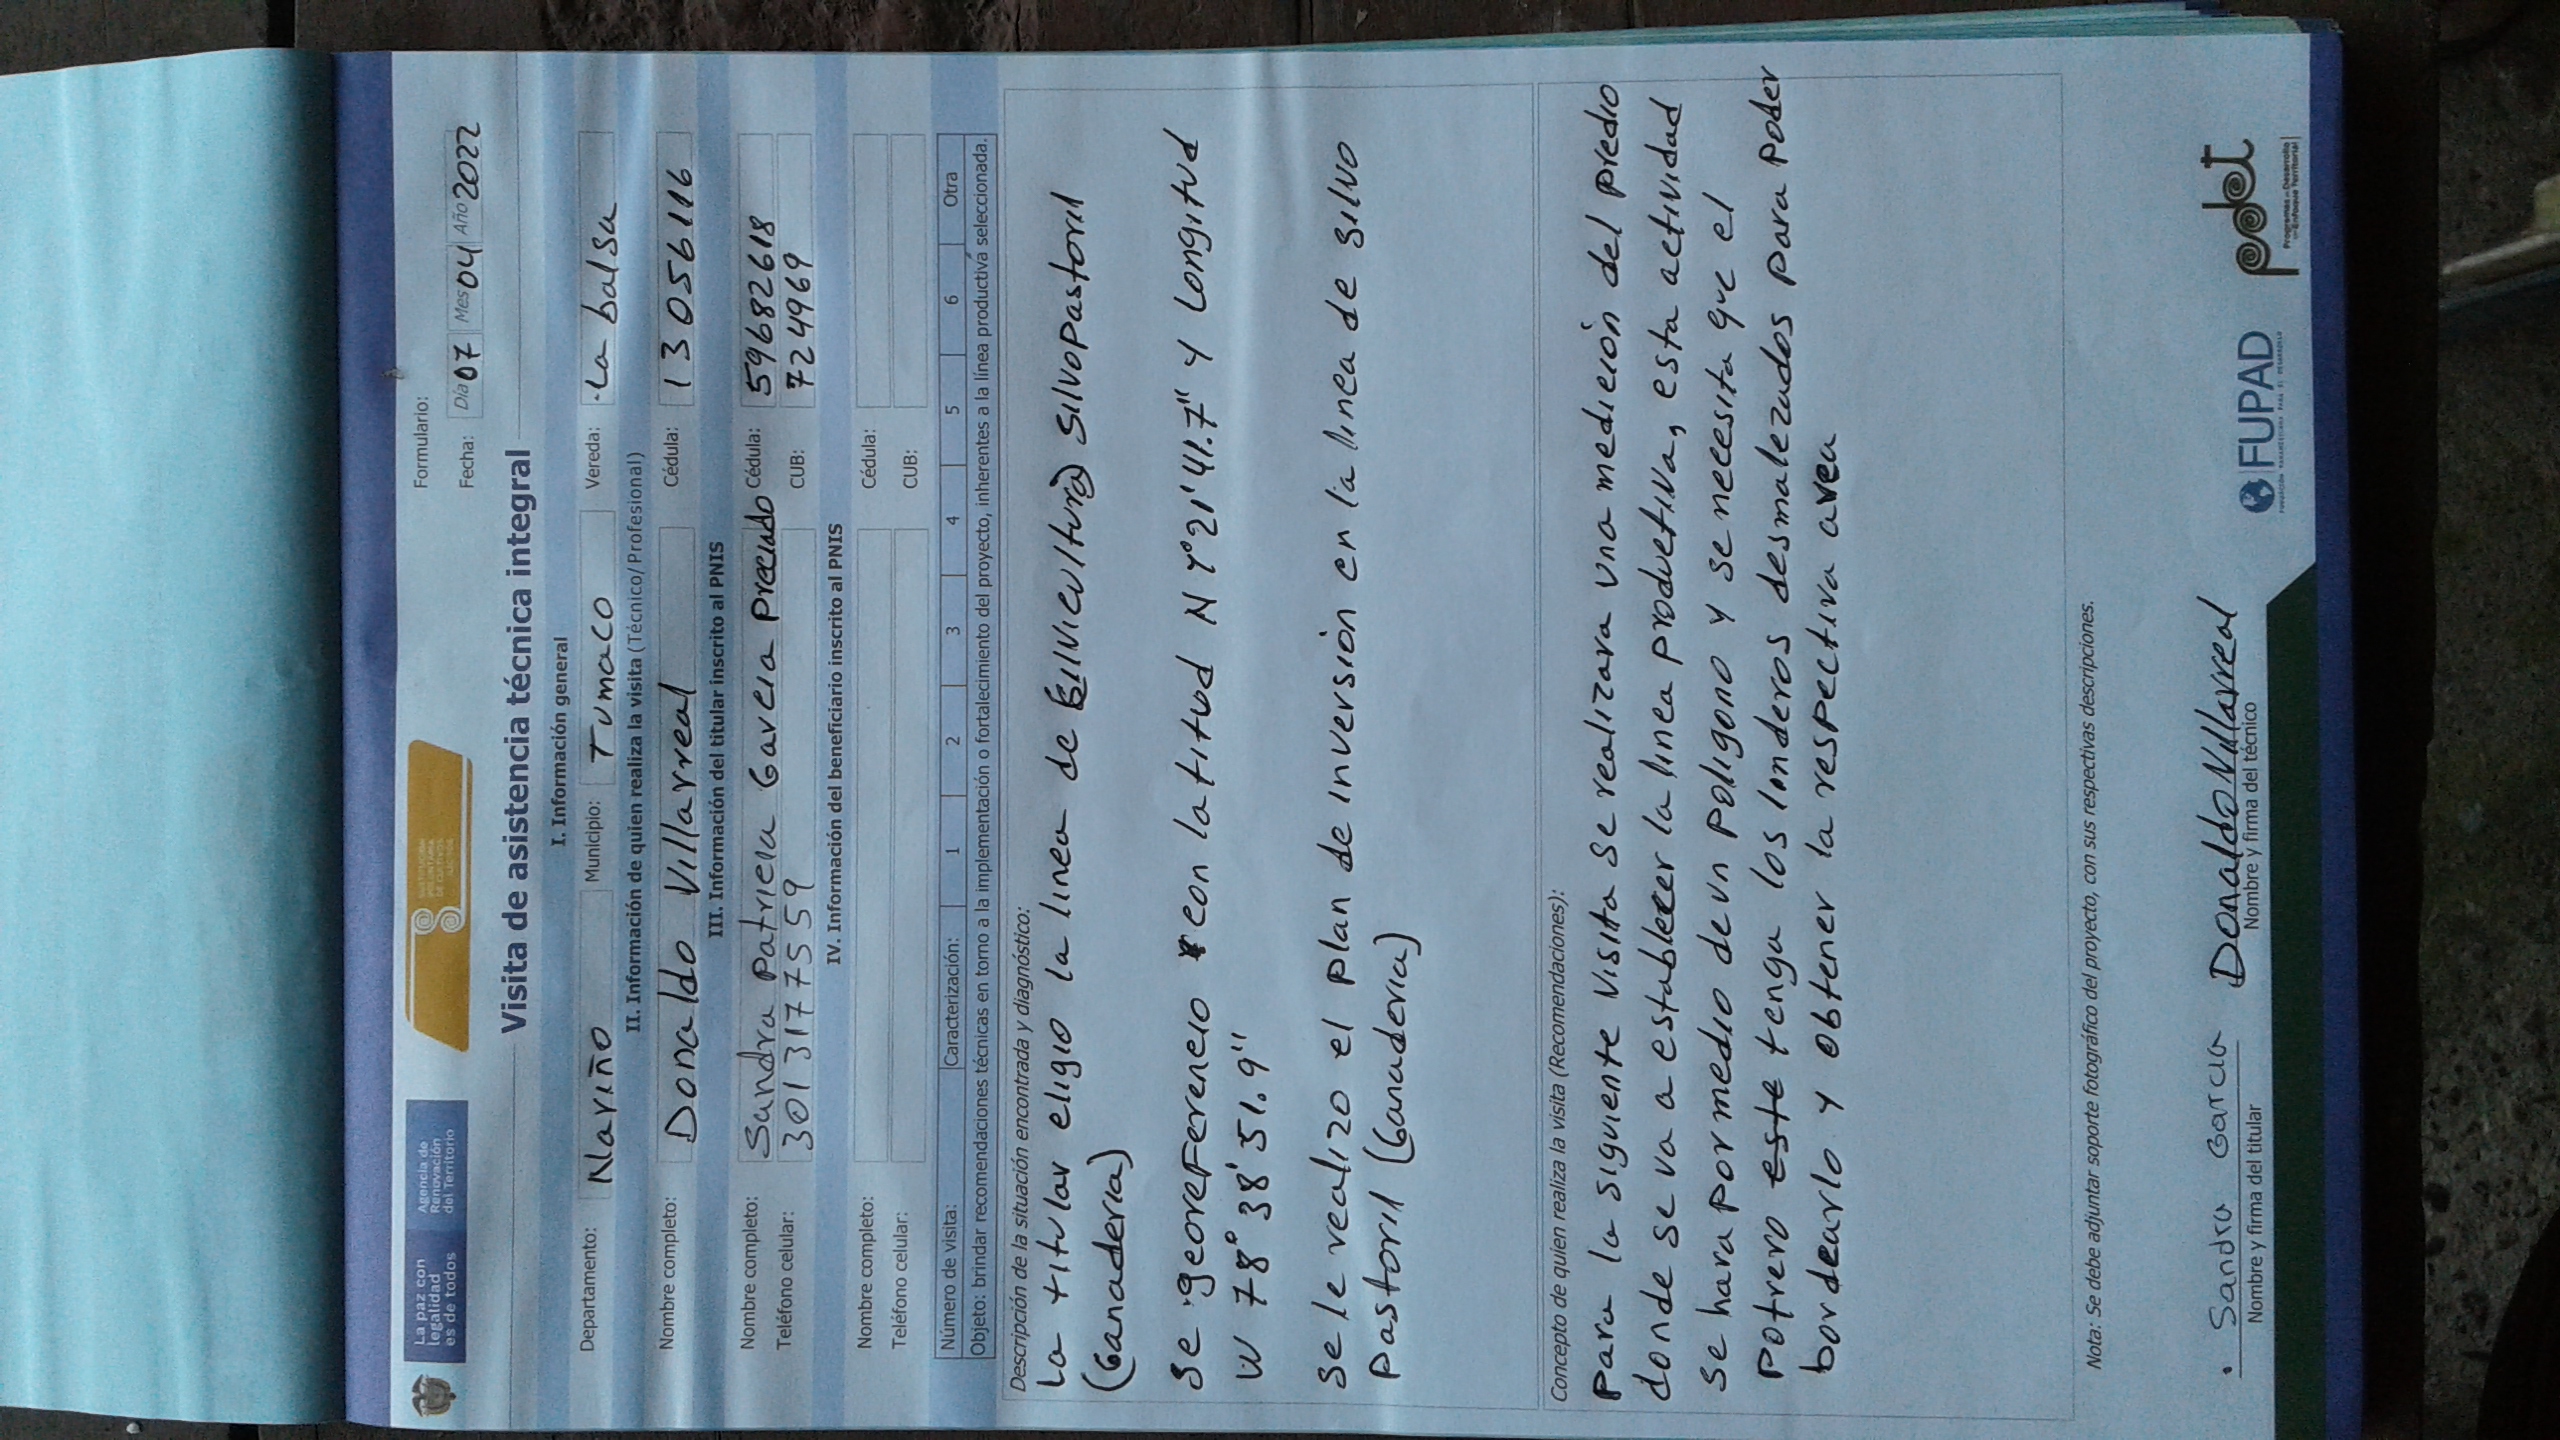 La paz con
legalidad
es de todos
Agencia de
Renovación
del Territorio
SUSTITUCIÓN
VOLUNTARIA
DE CULTIVOS
ILÍCITOS
Formulario:
Fecha: Día 07 Mes 04 Año 2022
Visita de asistencia técnica integral
I. Información general
Departamento: Nariño Municipio: Tumaco Vereda: La balsa
II. Información de quien realiza la visita (Técnico/ Profesional)
Nombre completo: Donaldo Villarreal Cédula: 13056116
III. Información del titular inscrito al PNIS
Nombre completo: Sandra Patricia Garcia Preciado Cédula: 59682618
Teléfono celular: 3013177559 CUB: 724969
IV. Información del beneficiario inscrito al PNIS
Nombre completo: Cédula:
Teléfono celular: CUB:
Número de visita: Caracterización: 1 2 3 4 5 6 Otra
Objeto: brindar recomendaciones técnicas en torno a la implementación o fortalecimiento del proyecto, inherentes a la línea productiva seleccionada.
Descripción de la situación encontrada y diagnóstico:
La titular eligio la linea de (silvicultura) silvopastoril
(Ganaderia)
Se georeferencio con latitud N 1°21'41.7" y Longitud
W 78°38'51.9"
Se le realizo el plan de inversión en la linea de silvo
pastoril (Ganaderia)
Concepto de quien realiza la visita (Recomendaciones):
Para la siguiente visita se realizara una medicion del predio
donde se va a establecer la linea productiva, esta actividad
se hara por medio de un poligono y se necesita que el
potrero este tenga los linderos desmalezados para poder
bordearlo y obtener la respectiva area
Nota: Se debe adjuntar soporte fotográfico del proyecto, con sus respectivas descripciones.
Sandra Garcia Donaldo Villarreal
Nombre y firma del titular Nombre y firma del técnico
FUPAD
FUNDACIÓN PANAMERICANA PARA EL DESARROLLO
pdet
Programas de Desarrollo
con Enfoque Territorial